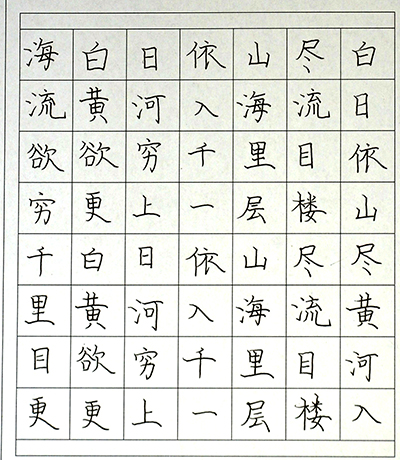 海白日依山尽白
流黄河入海流日
欲欲穷千里目依
穷更上一层楼山
千白日依山尽尽
里黄河入海流黄
目欲穷千里目河
更更上一层楼入